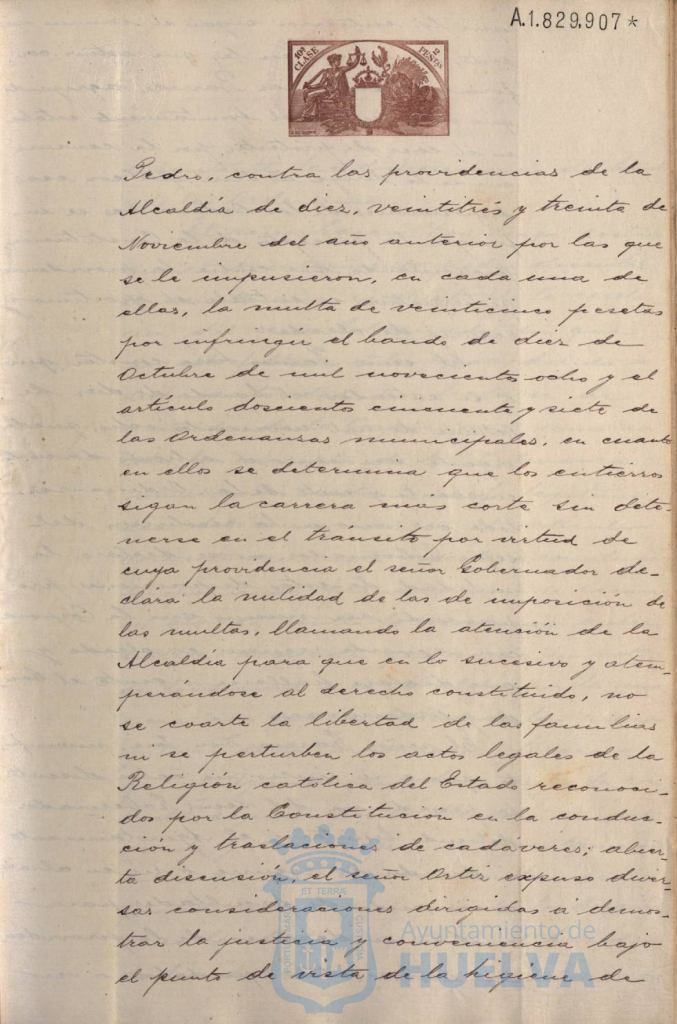 A.1.829.907*
10ª CLASE
2 PESETAS
Pedro, contra las providencias de la
Alcaldía de diez, veintitrés y treinta de
Noviembre del año anterior por las que
se le impusieron, en cada una de
ellas, la multa de veinticinco pesetas
por infringir el bando de diez de
Octubre de mil novecientos ocho y el
artículo doscientos cincuenta y siete de
las Ordenanzas municipales, en cuanto
en ellos se determina que los entierros
sigan la carrera más corta sin dete-
nerse en el tránsito por virtud de
cuya providencia el señor Gobernador de-
clara la nulidad de las de imposición de
las multas, llamando la atención de la
Alcaldía para que en lo sucesivo y atem-
perándose al derecho constituido, no
se coarte la libertad de las familias
ni se perturben los actos legales de la
Religión católica del Estado reconoci-
dos por la Constitución en la conduc-
ción y traslaciones de cadáveres; abier-
ta discusión, el señor Ortiz expuso diver-
sas consideraciones dirigidas á demos-
trar la justicia y conveniencia bajo
el punto de vista de la higiene de
Ayuntamiento de
HUELVA